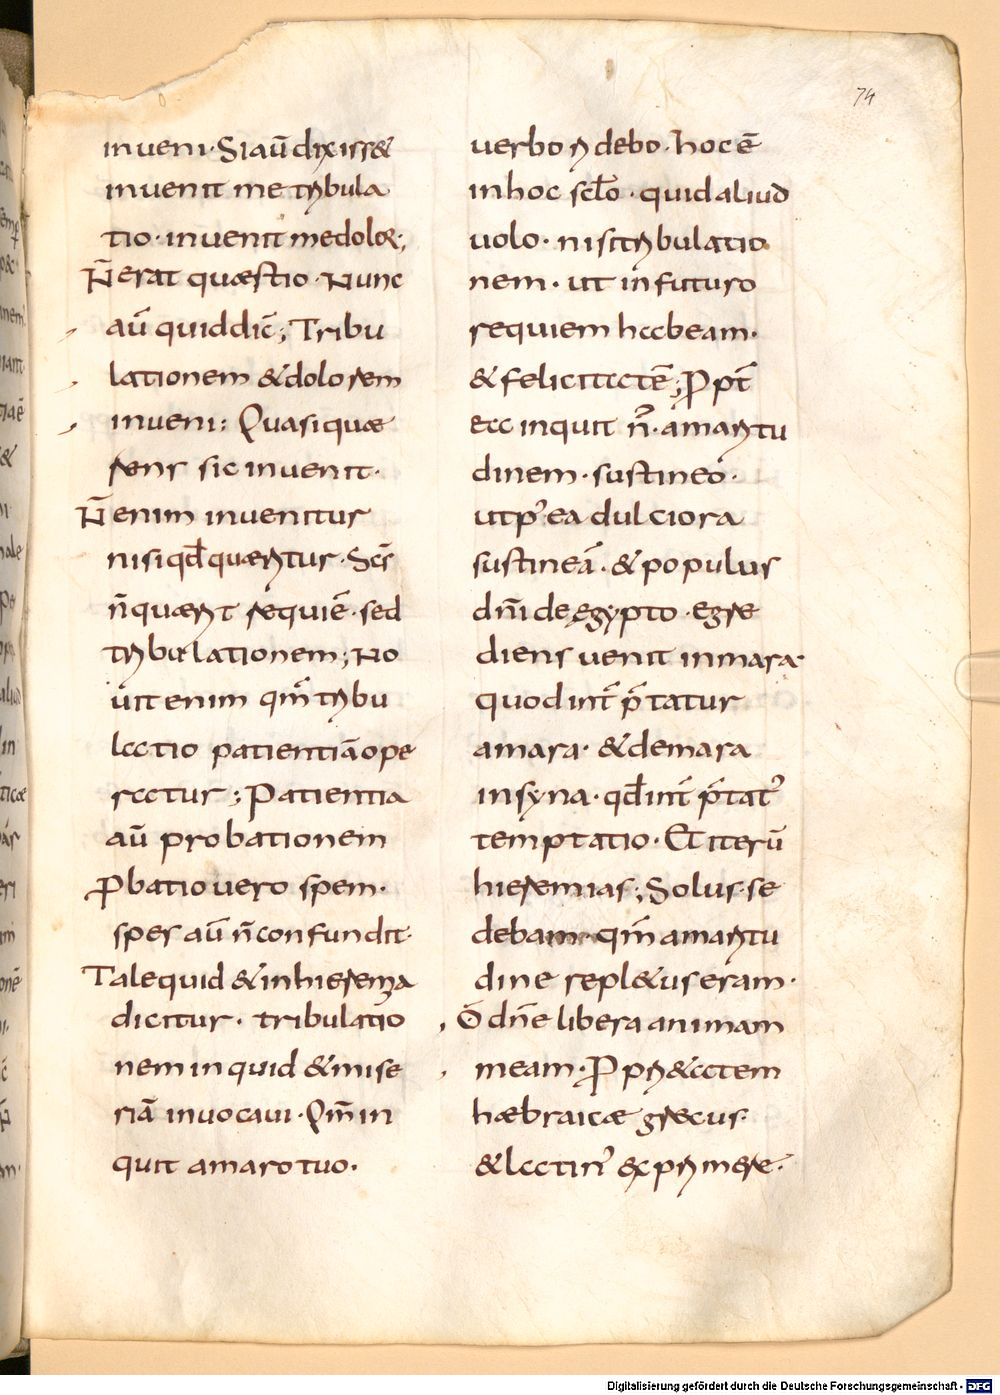 74
inueni· Si aū dixiss&
inuenit me tribula
tio· inuenit me dolor;
N̄ erat quæstio· Nunc
aū quid dic̄; Tribu
lationem & dolorem
inueni: Quasi quæ
rens sic inuenit·
N̄ enim inuenitur
nisi qđ quæritur· Scs̄
n̄ quærit requiē· sed
tribulationem; No
uit enim qm̄ tribu
latio patientiā ope
ratur; Patientia
aū probationem
Pbatio uero spem·
spes aū n̄ confundit·
Tale quid & in hieremia
dicitur· tribulatio
nem inquid & mise
riā inuocaui· Qm̄ in
quit amaro tuo·
uerbo ridebo· hoc ē
in hoc scło· quid aliud
uolo· nisi tribulatio
nem· ut in futuro
requiem habeam·
& felicitatē; Ppt̄
ea inquit n̄· amaritu
dinem· sustineo·
ut p' ea dulciora
sustineā· & populus
dn̄i de ęgypto· egre
diens uenit in mara·
quod int̄ p̄tatur
amara· & de mara
in syna· qđ int̄ p̄tat'
temptatio· Et iterū
hieremias; Solus· se
debam· qm̄ amaritu
dine repl&us eram·
O dn̄e libera animam
meam· P pri&atem
hæbraicæ grecus·
& latin' exprimere·
Digitalisierung gefördert durch die Deutsche Forschungsgemeinschaft - DFG